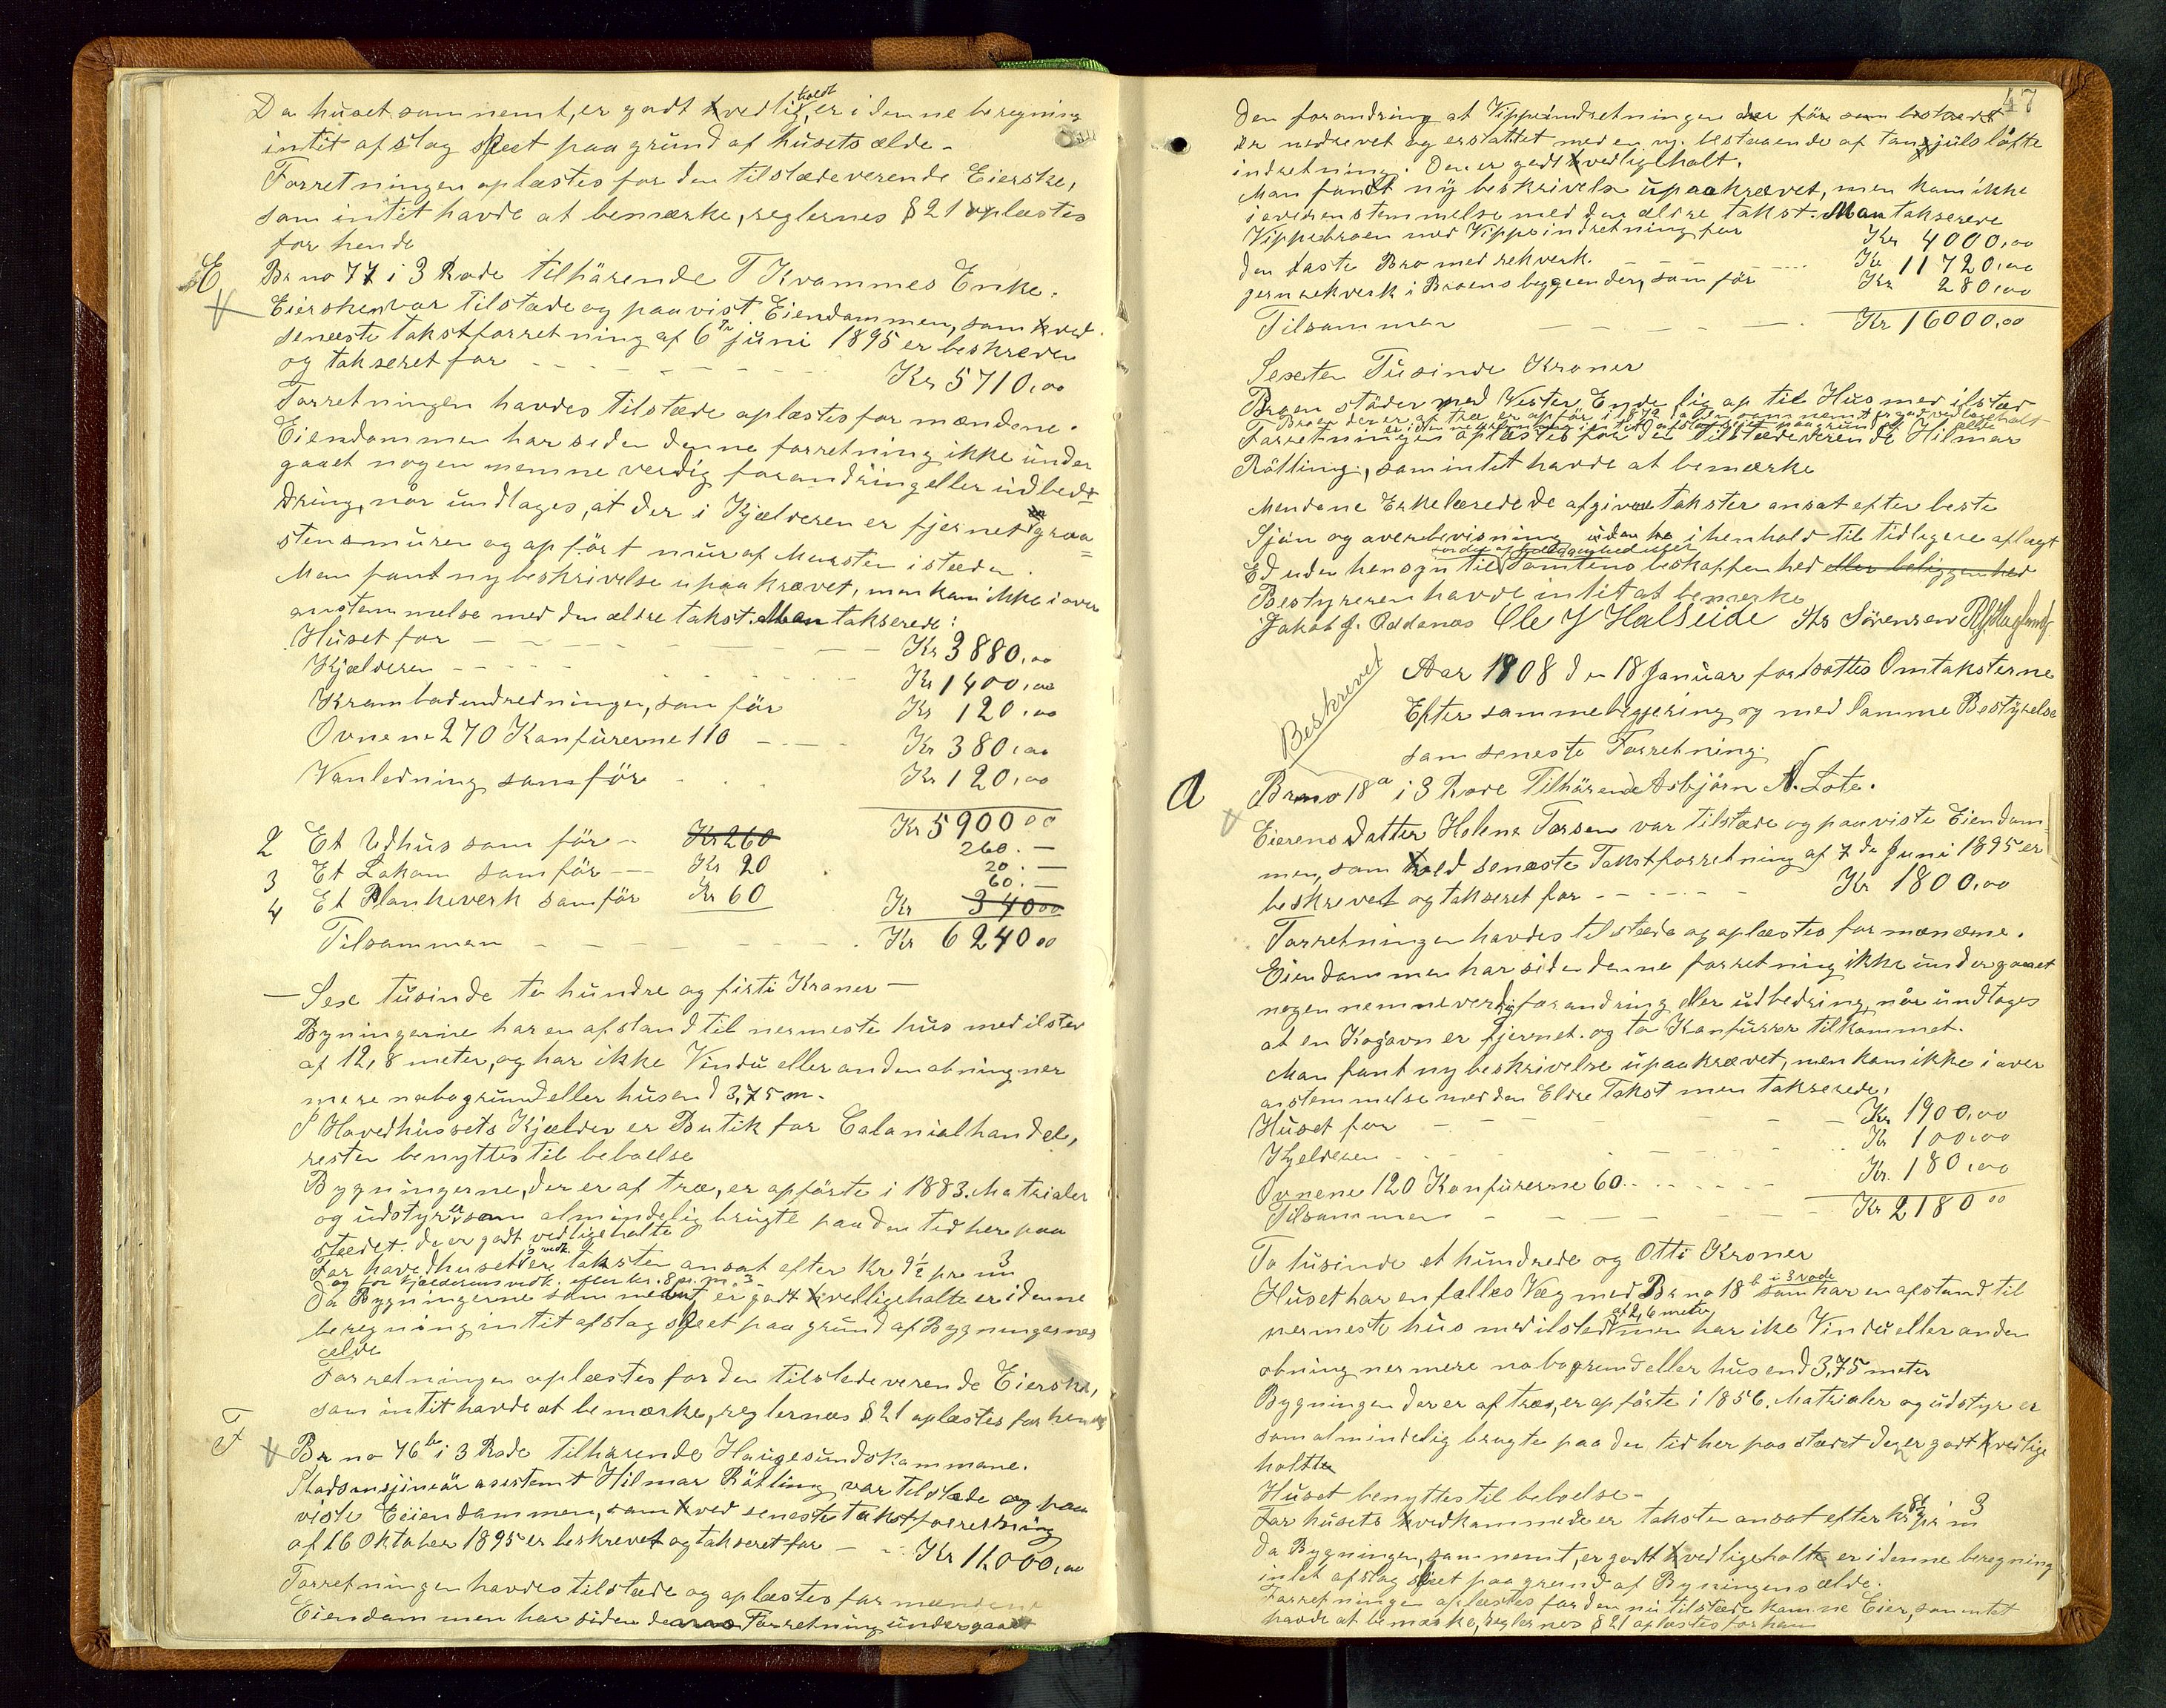 Da huset som nemt, er godt vedligholdt, er i denne beregning
intit afslag skeet paa grund af husets ælde.
Forretningen oplæstes for den tilstædeverende Eierske,
som intit havde at bemærke, reglernes § 21 oplæstes
for hende
E Br no 77 i 3 Rode tilhärende T Kvammes Enke.
Eiersken var tilstæde og paavist Eiendammen, som ved
seneste takstforretning af 6te juni 1895 er beskreven
og takseret for - - - - Kr 5710,00
Forretningen havdes tilstæde oplæstes for mændene.
Eiendammen har siden denne forretning ikke under
gaaet nogen nemne verdig forandring eller udbed=
dring, når undtages, at der i Kjælderen er fjernet graa
stensmuren og opfört mur af Mursten istæden.
Man fant ny beskrivelse upaakrævet, man kam ikke i over
enstemmelse med den ældre takst. Man takserede:
Huset for - - - - Kr 3880,00
Kjælderen - - - - Kr 1400,00
Krambodindredningen, som för Kr 120,00
Ovnene 270 Kanfurerne 110 - - - Kr 380,00
Vanledning som för Kr 120,00
Kr 5900 00
2 Et Udhus som för - Kr 260 260.-
3 Et Lokam som för - - Kr 20 20.-
60.-
4 Et Plankeverk som för Kr 60 Kr 340 00
Tilsammen - - - - Kr 6240 00
- Sex tusinde to hundre og firti Kroner -
Bygningerne har en afstand til nermeste hus med ilsted
af 12,8 meter, og har ikke Vindu eller anden abning ner
mere nabogrund eller hus end 3,75 m.
I Hovedhusets Kjælder er Butik for Colonialhandel,
resten benyttes til beboelse
Bygningerne, der er af træ, er opförte i 1883. Matrialer
og udstyr er som almindelig brugte paa den tid her paa
stædet. de er godt vedligeholte
For hovedhusets vedk. er taksten ansat efter Kr 9½ pr m3
og for Kjælderens vedk. efter kr. 8 pr. m3.
Da Bygningerne som nemt er godt vedligeholte er i denne
beregning intit afslag skeet paa grund af Bygningernes
ælde
Forretningen oplæstes for den tilstedeverende Eierske,
som intit havde at bemærke, reglernes § 21 oplæstes for hende
F Br no 76b i 3 Rode Tilhärende Haugesunds Kommune.
Stadsinsjiniär asistent Hilmar Rötting var tilstæde og paa
viste Eiendammen, som ved seneste takstforretning
af 16 Oktober 1895 er beskrevet og takseret for - - Kr 11.000,00
Forretningen havdes tilstæde og oplæstes for mændene
Eiendammen har siden denne Forretning undergaaet
47
Den forandring at Vippeindretningen der för som bestaaet
er nedrevet og erstattet med en ny bestaaende af tanhjuls löfte
indretning. Den er godt vedligholt.
Man fandt ny beskrivelse upaakrævet, men kam ikke
i overenstemmelse med den ældre takst. Man takserere
Vippebroen med Vippeindretning for Kr 4000,00
Den faste Bro med rekverk. - - - Kr 11720,00
jernrekverk i Broens begge ender, som för Kr 280,00
Tilsammen - - - - Kr 16000,00
Sexten Tusinde Kroner
Broen stöder med Vester Ende lig op til Hus med ilsted
Broen der er af træ er opför i 1872 som nemt er god vedligeholt
Forretningen oplæstes for den tilstædeverende Hilmar
Rötting, som intet havde at bemærke
Mendene Erkelærede de afgivne takster ansat efter beste
Sjön og overbevisning i henhold til tidligere aflagt
Ed uden hensyn til Tomtens beskaffenhed eller beliggenhed
Bestyreren havde intit at bemærke
Jakob J. Oddenes Ole J Halseide Hs Sörensen
Beskrevet
Aar 1908 den 18 Januar fortsattes Omtaksterne
Efter samme begjering og med samme Bestyrelse
som seneste Forretning.
a Br no 18a i 3 Rode Tilhärende Asbjörn N. Lote.
Eierens Datter Helene Tarsen var tilstæde og paaviste Eiendam=
men, som ved seneste Takstforretning af 7de Juni 1895 er
beskrevet og takseret for - - - - Kr 1800,00
Forretningen havdes tilstæde og oplæstes for mændene.
Eiendammen har siden denne forretning ikke undergaaet
nogen nemneverdig forandring eller udbedring, når undtages
at en Kogovn er fjernet og to Kanfurer tilkommet.
Man fant ny beskrivelse upaakrævet, men kam ikke i over
enstemmelse med den Eldre Takst men takserede.
Huset for - - - - Kr 1900,00
Kjelderen - - - - Kr 100,00
Ovnene 120 Konfurerne 60 - - - - Kr. 180,00
Tilsammen - - - - Kr 2180 00
To tusinde et hundrede og Otti Kroner
Huset har en fælles Væg med Br no 18b i 3 rode som har en afstand til
nermeste hus med ilsted af 2,6 meter, men har ike Vindu eller anden
obning nermere nabogrund eller hus end 3,75 meter
Bygningen der er af træ, er opförte i 1856. Matrialer og udstyr er
som almindelig brugte paa den tid her paa stædet den er godt vedlige
holtte
Huset benyttes til beboelse -
For husets vedkammede er taksten ansat efter kr 8½ pr m3
Da Bygningen, som nemt, er godt vedligeholte er i denne beregning
intet afslag skeet paa grund af Bygningens ælde.
Forretningen oplæstes for den nu tilstæde kamne Eier, som intet
havde at bemærke, reglernes § 21 oplæstes for ham